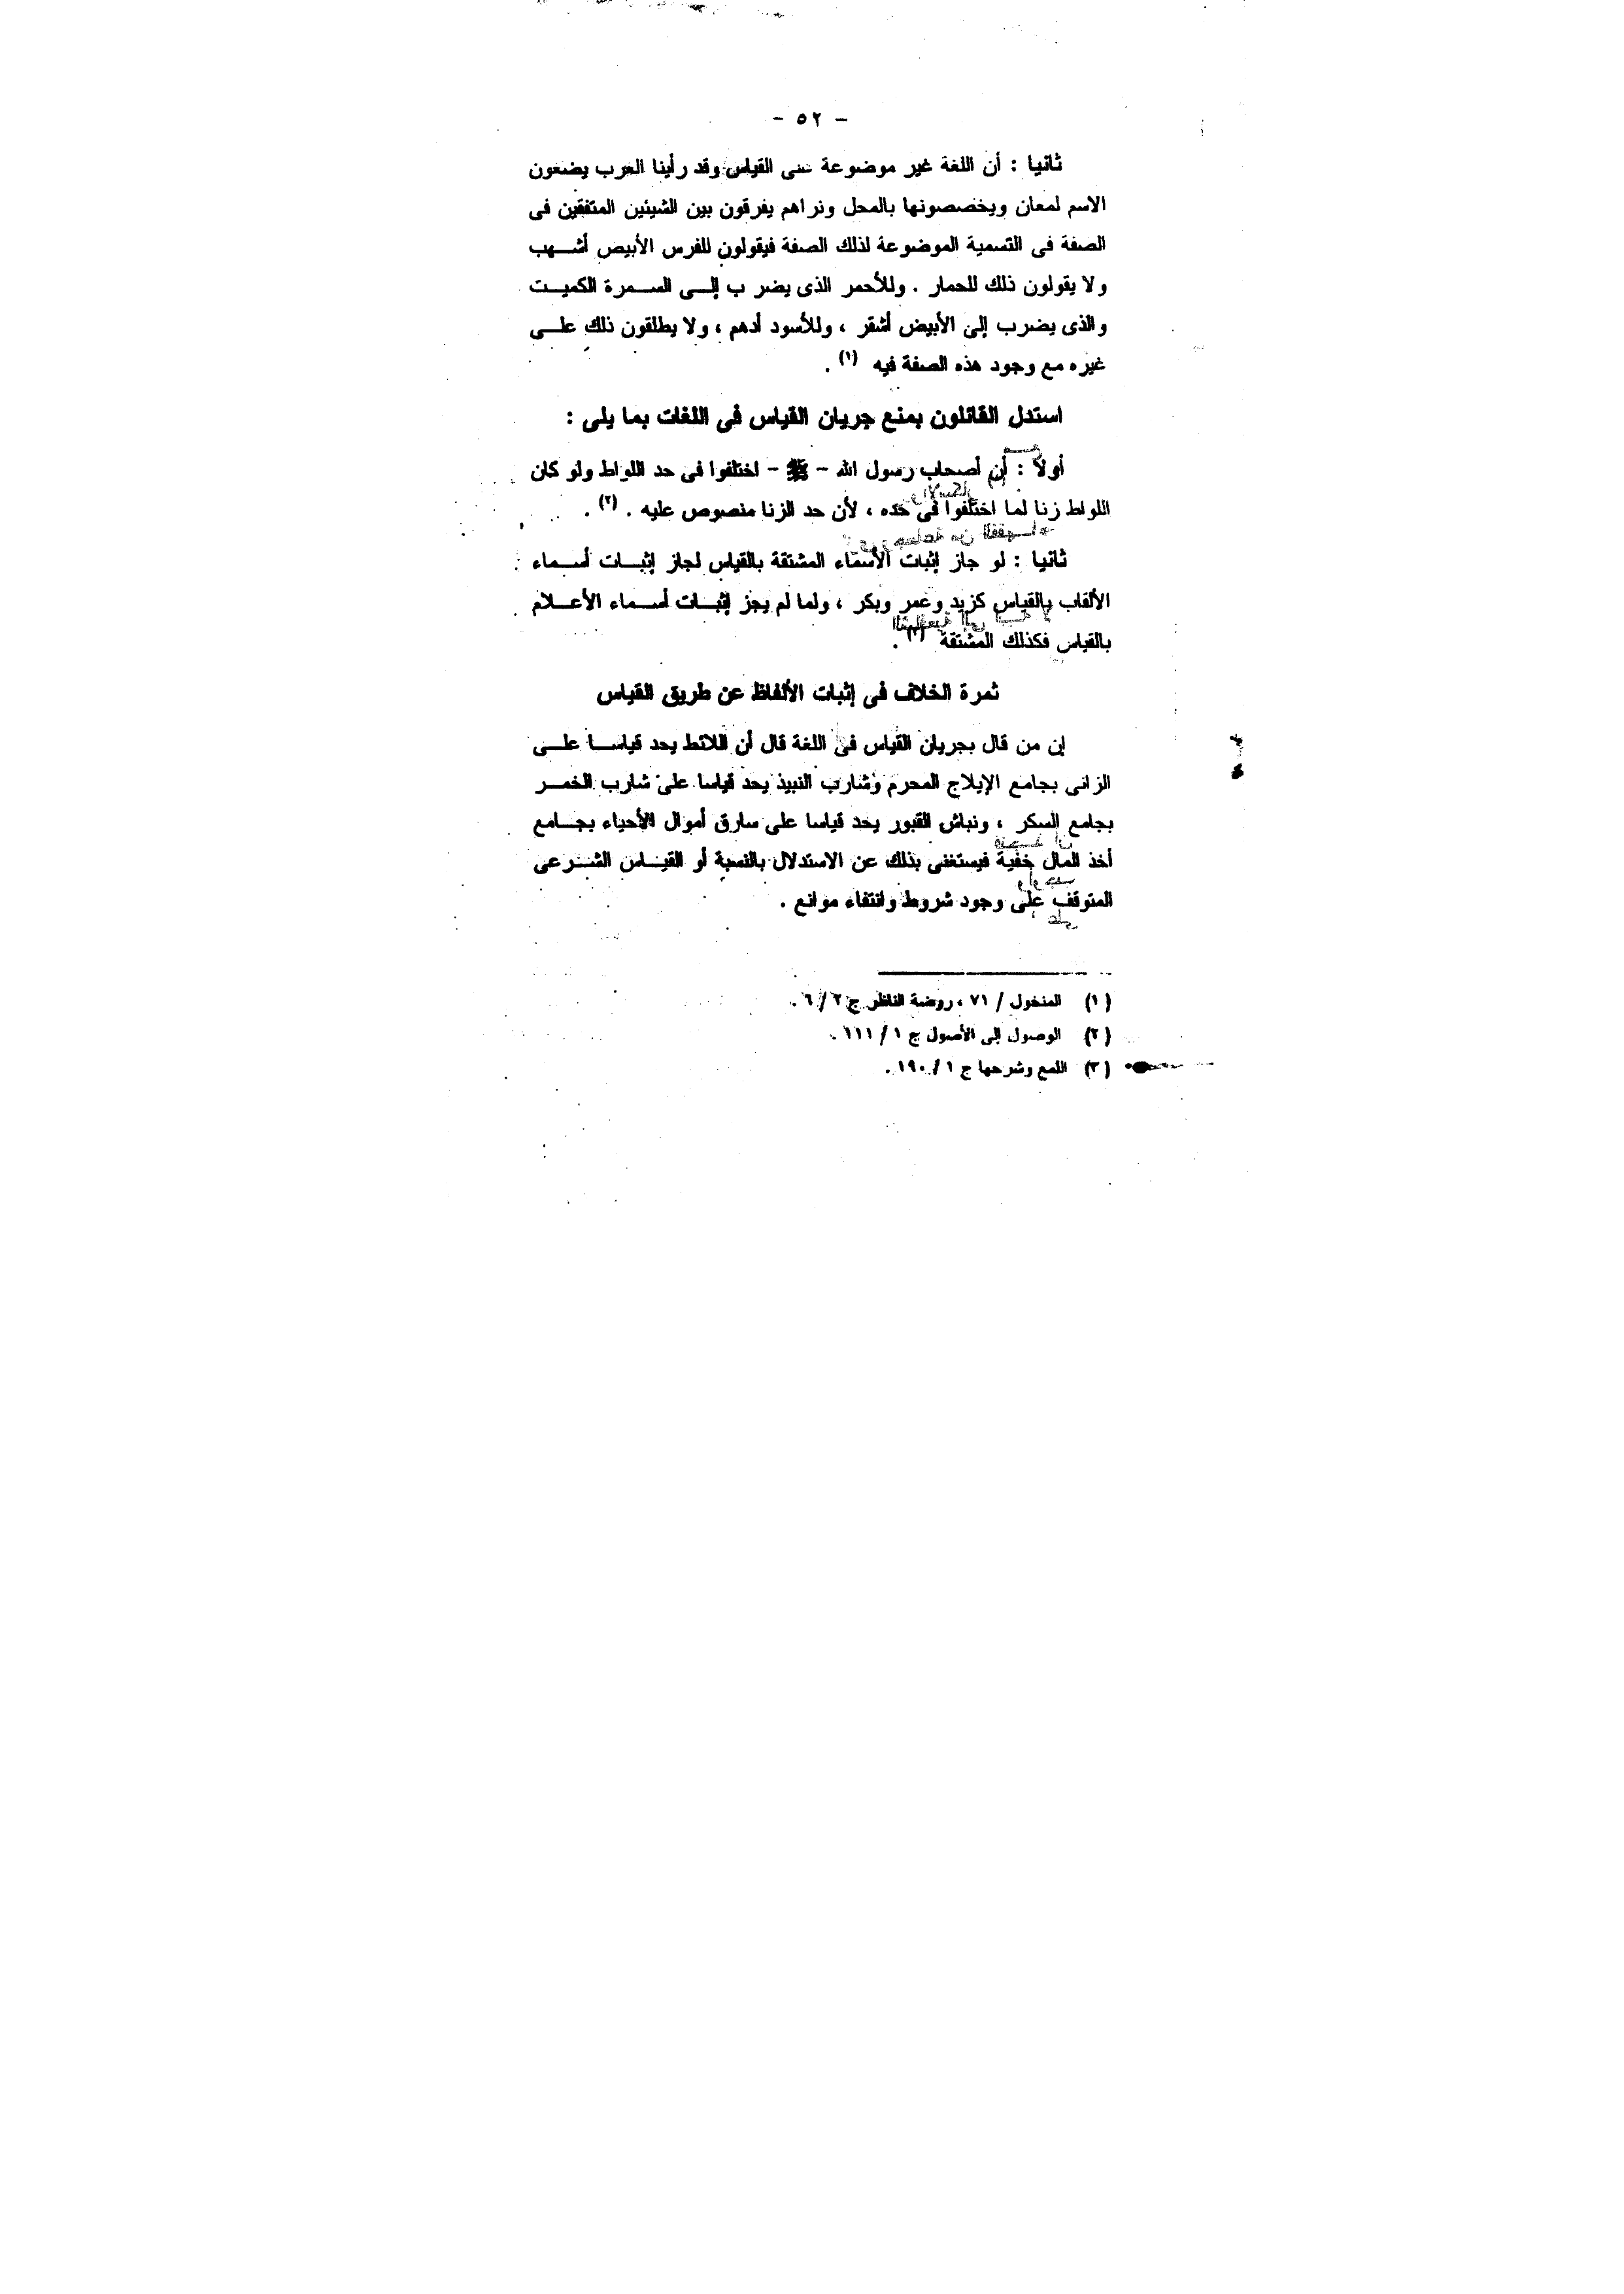 - ٥٢ -
ثانيا : أن اللغة غير موضوعة على القياس وقد رأينا العرب يضعون
الاسم لمعان ويخصصونها بالمحل ونراهم يفرقون بين الشيئين المتفقين فى
الصفة فى التسمية الموضوعة لذلك الصفة فيقولون للفرس الأبيض أشـــهب
ولا يقولون ذلك للحمار . وللأحمر الذى يضرب إلـــى الســـمرة الكميـــت
والذى يضرب إلى الأبيض أشقر ، وللأسود أدهم ، ولا يطلقون ذلك علـــى
غيره مع وجود هذه الصفة فيه (١) .
استدل القائلون بمنع جريان القياس فى اللغات بما يلى :
أولا : أن أصحاب رسول الله - ﷺ - اختلفوا فى حد اللواط ولو كان
اللواط زنا لما اختلفوا فى حده ، لأن حد الزنا منصوص عليه . (٢) .
ثانيا : لو جاز إثبات الأسماء المشتقة بالقياس لجاز إثبـــات أســـماء
الألقاب بالقياس كزيد وعمر وبكر ، ولما لم يجز إثبـــات أســـماء الأعـــلام
بالقياس فكذلك المشتقة (٣) .
ثمرة الخلاف فى إثبات الألفاظ عن طريق القياس
إن من قال بجريان القياس فى اللغة قال أن اللائط يحد قياســـا علـــى
الزانى بجامع الإيلاج المحرم وشارب النبيذ يحد قياسا على شارب الخمـــر
بجامع السكر ، ونباش القبور يحد قياسا على سارق أموال الأحياء بجـــامع
أخذ المال خفية فيستغنى بذلك عن الاستدلال بالنسبة أو القيـــاس الشـــرعى
المتوقف على وجود شروط وانتفاء موانع .
(١) المنخول / ٧١ ، روضة الناظر ج ٢ / ٦ .
(٢) الوصول إلى الأصول ج ١ / ١١١ .
(٣) اللمع وشرحها ج ١ / ١٩٠ .